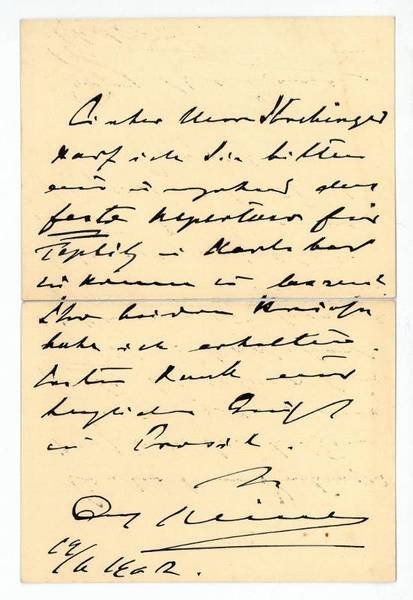 Lieber Herr
darf ich Sie bitten
mir umgehend das
feste Repertoir für
Teplitz u Karlsbad
zukommen zu lassen!
Ihre beiden Briefe
habe ich erhalten.
Besten Dank und
herzlichen Gruß
in Prosit.
Ihr
19/6 1902.